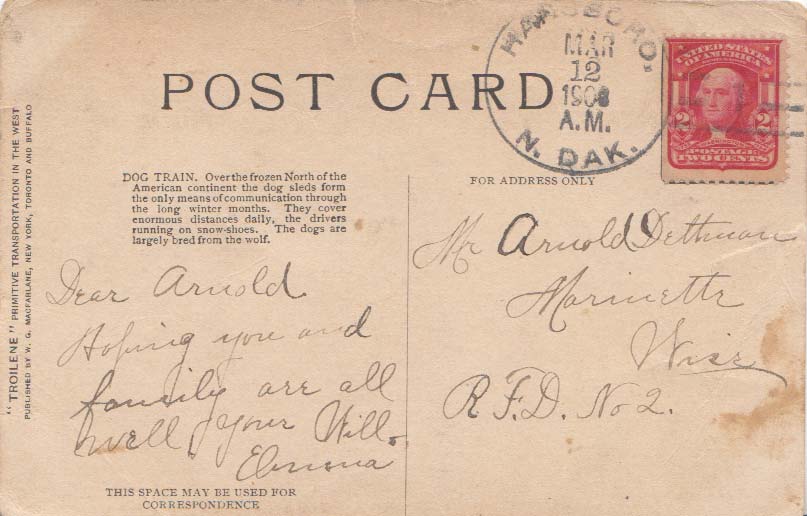 POST CARD
HANSBORO,
MAR
12
1908
A.M.
N. DAK.
UNITED STATES
OF AMERICA
2 2
POSTAGE
TWO CENTS
"TROILENE" PRIMITIVE TRANSPORTATION IN THE WEST
PUBLISHED BY W. G. MACFARLANE, NEW YORK, TORONTO AND BUFFALO
DOG TRAIN. Over the frozen North of the
American continent the dog sleds form
the only means of communication through
the long winter months. They cover
enormous distances daily, the drivers
running on snow-shoes. The dogs are
largely bred from the wolf.
FOR ADDRESS ONLY
Dear Arnold
Hoping you and
family are all
well your Will.
Emma
Mr Arnold Dettman
Marinette
Wisc
R.F.D. No 2.
THIS SPACE MAY BE USED FOR
CORRESPONDENCE